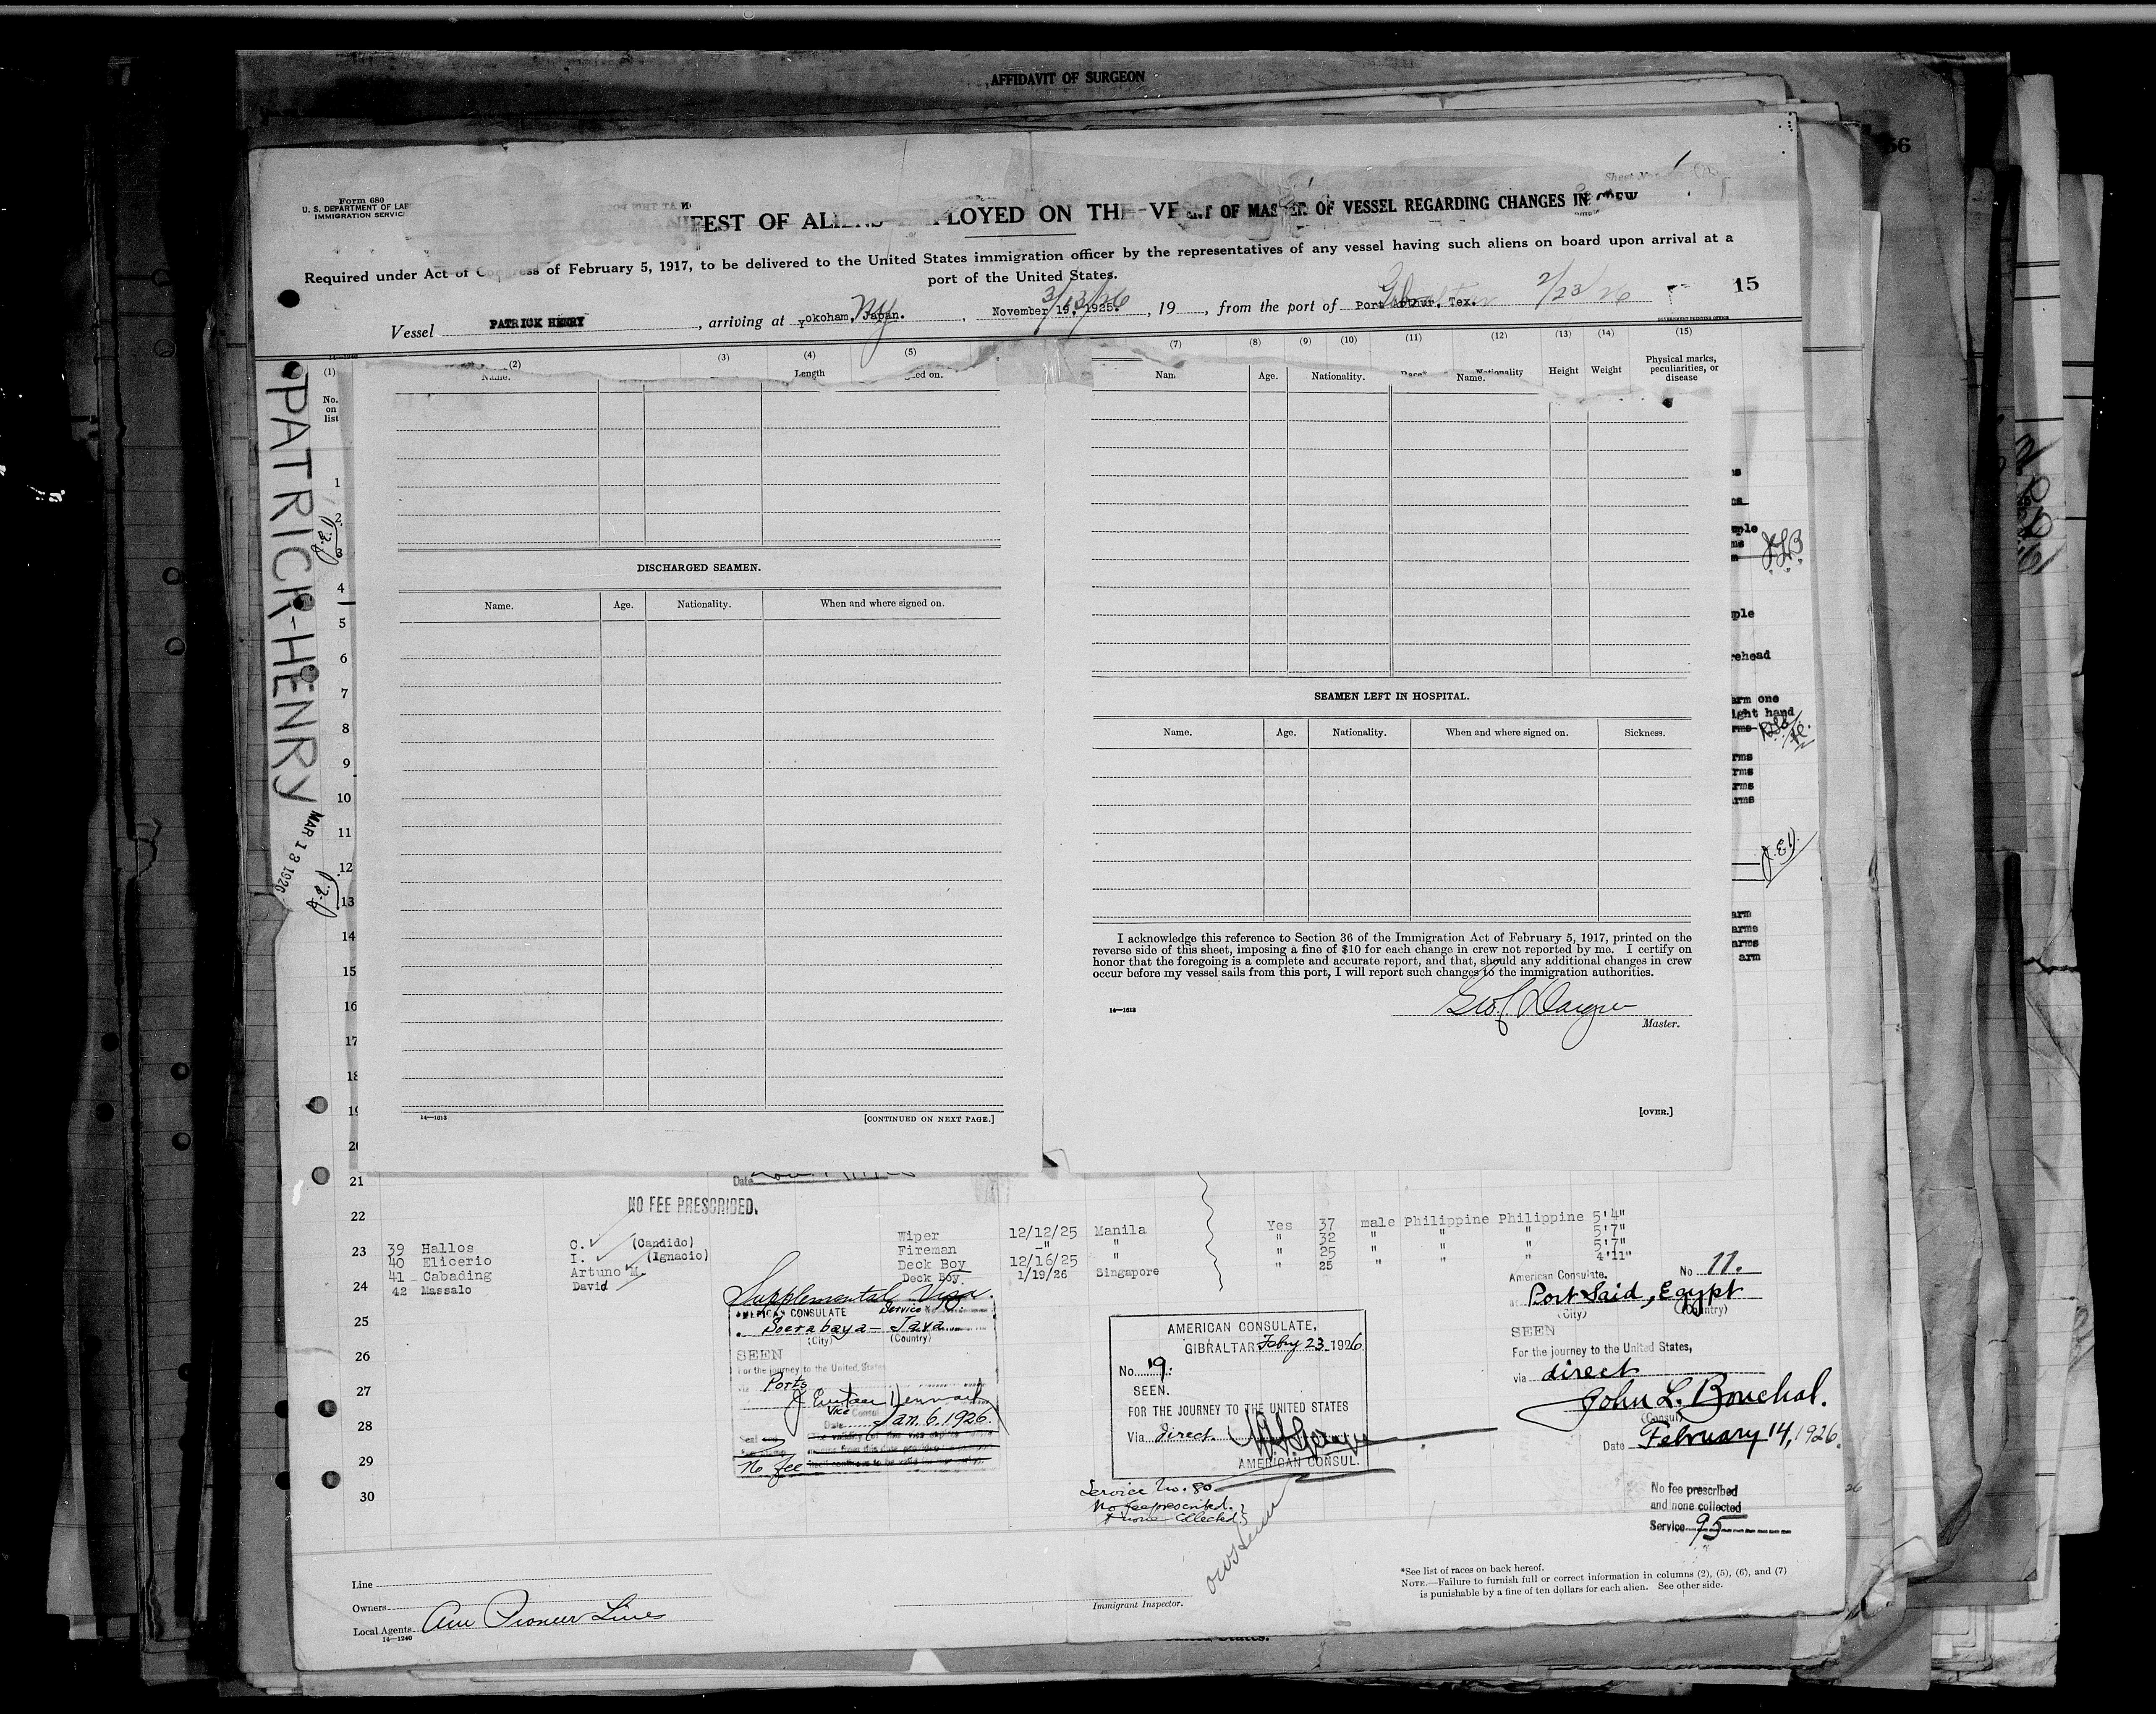 AFFIDAVIT OF SURGEON
56
1
Form 680
U. S. DEPARTMENT OF LAB
IMMIGRATION SERVIC
Sheet No.
IFEST OF ALIENS EMPLOYED ON THE VE
NT OF MASTER OF VESSEL REGARDING CHANGES IN CREW
Required under Act of Congress of February 5, 1917, to be delivered to the United States immigration officer by the representatives of any vessel having such aliens on board upon arrival at a
port of the United States.
15
Vessel PATRICK HENRY, arriving at Yokoham, Japan. NY, November 19, 1925. 3/13/26, 19, from the port of Port Arthur, Tex. Gibraltar 2/23/26
GOVERNMENT PRINTING OFFICE
(1) (2) (3) (4) (5) (7) (8) (9) (10) (11) (12) (13) (14) (15)
No. on list
Name.
Length
ed on.
Nam
Age.
Nationality.
Race
Name.
Nationality
Height
Weight
Physical marks, peculiarities, or disease
PATRICK-HENRY
MAR 13 1926
1
2
3
4
5
6
7
8
9
10
11
12
13
14
15
16
17
18
19
20
DISCHARGED SEAMEN.
Name. Age. Nationality. When and where signed on.
14—1613
[CONTINUED ON NEXT PAGE.]
SEAMEN LEFT IN HOSPITAL.
Name. Age. Nationality. When and where signed on. Sickness.
I acknowledge this reference to Section 36 of the Immigration Act of February 5, 1917, printed on the
reverse side of this sheet, imposing a fine of $10 for each change in crew not reported by me. I certify on
honor that the foregoing is a complete and accurate report, and that, should any additional changes in crew
occur before my vessel sails from this port, I will report such changes to the immigration authorities.
14—1613
Master.
[OVER.]
ple
rehead
arm one
ight hand
rms
rms
rms
rms
rms
arm
arms
arms
arm
21
Date
NO FEE PRESCRIBED.
22
23
24
25
26
27
28
29
30
39 Hallos C. (Candido) Wiper 12/12/25 Manila Yes 37 male Philippine Philippine 5'4"
40 Elicerio I. (Ignacio) Fireman —" " " 32 " " " 5'7"
41 Cabading Arturo M. Deck Boy 12/16/25 " " 25 " " " 5'7"
42 Massalo David Deck Boy 1/19/26 Singapore " 25 " " " 4'11"
Supplemental Visa.
AMERICAN CONSULATE Service No.
Soerabaya - Java
(City) (Country)
SEEN
For the journey to the United States
via Ports
Vice Consul
Date Jan. 6. 1926.
No fee
AMERICAN CONSULATE,
GIBRALTAR Feby 23 1926
No. 19:
SEEN.
FOR THE JOURNEY TO THE UNITED STATES
Via direct.
AMERICAN CONSUL.
Service No. 80
No fee prescribed.
& none Collected.
American Consulate. No 11.
at Port Said, Egypt
(City) (Country)
SEEN
For the journey to the United States,
via direct
John L. Bouchal.
(Consul)
Date February 14, 1926.
No fee prescribed
and none collected
Service 95
Line
Owners
Local Agents Am Pioneer Lines
14—1240
Immigrant Inspector.
*See list of races on back hereof.
NOTE.—Failure to furnish full or correct information in columns (2), (5), (6), and (7)
is punishable by a fine of ten dollars for each alien. See other side.